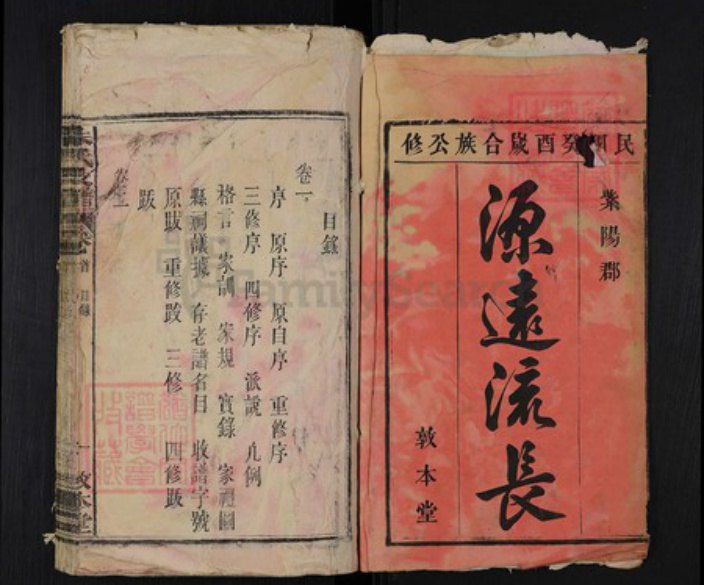 民國癸酉歲合族公修
紫陽郡
源遠流長
敦本堂
目錄
卷一
序 原序 原自序 重修序
三修序 四修序 派說 凡例
格言 家訓 家規 實錄 家禮圖
縣祠議據 存老譜名目 收譜字號
原跋 重修跋 三修 四修跋
跋
卷二
朱氏支譜
首 目錄
一 敦本堂
FamilySearch